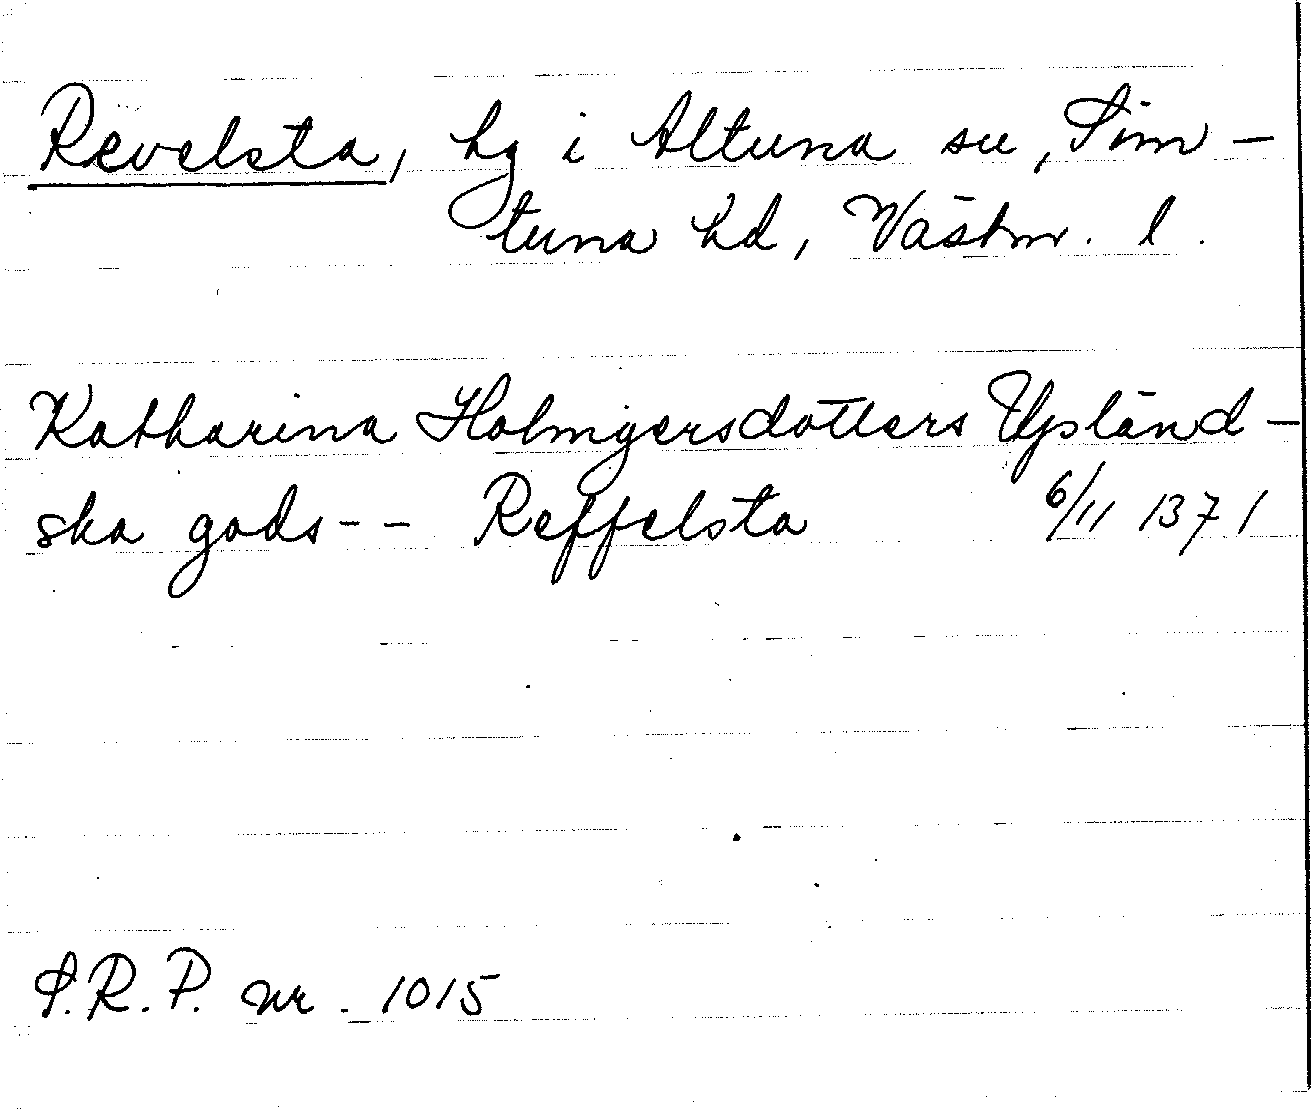 Revelsta, hg i Altuna sn, Sim-
tuna hd, Västm. l.
Katharina Holmgersdotters Upländ-
ska gods-- Reffelsta 6/11 1371
S.R.P. nr. 1015